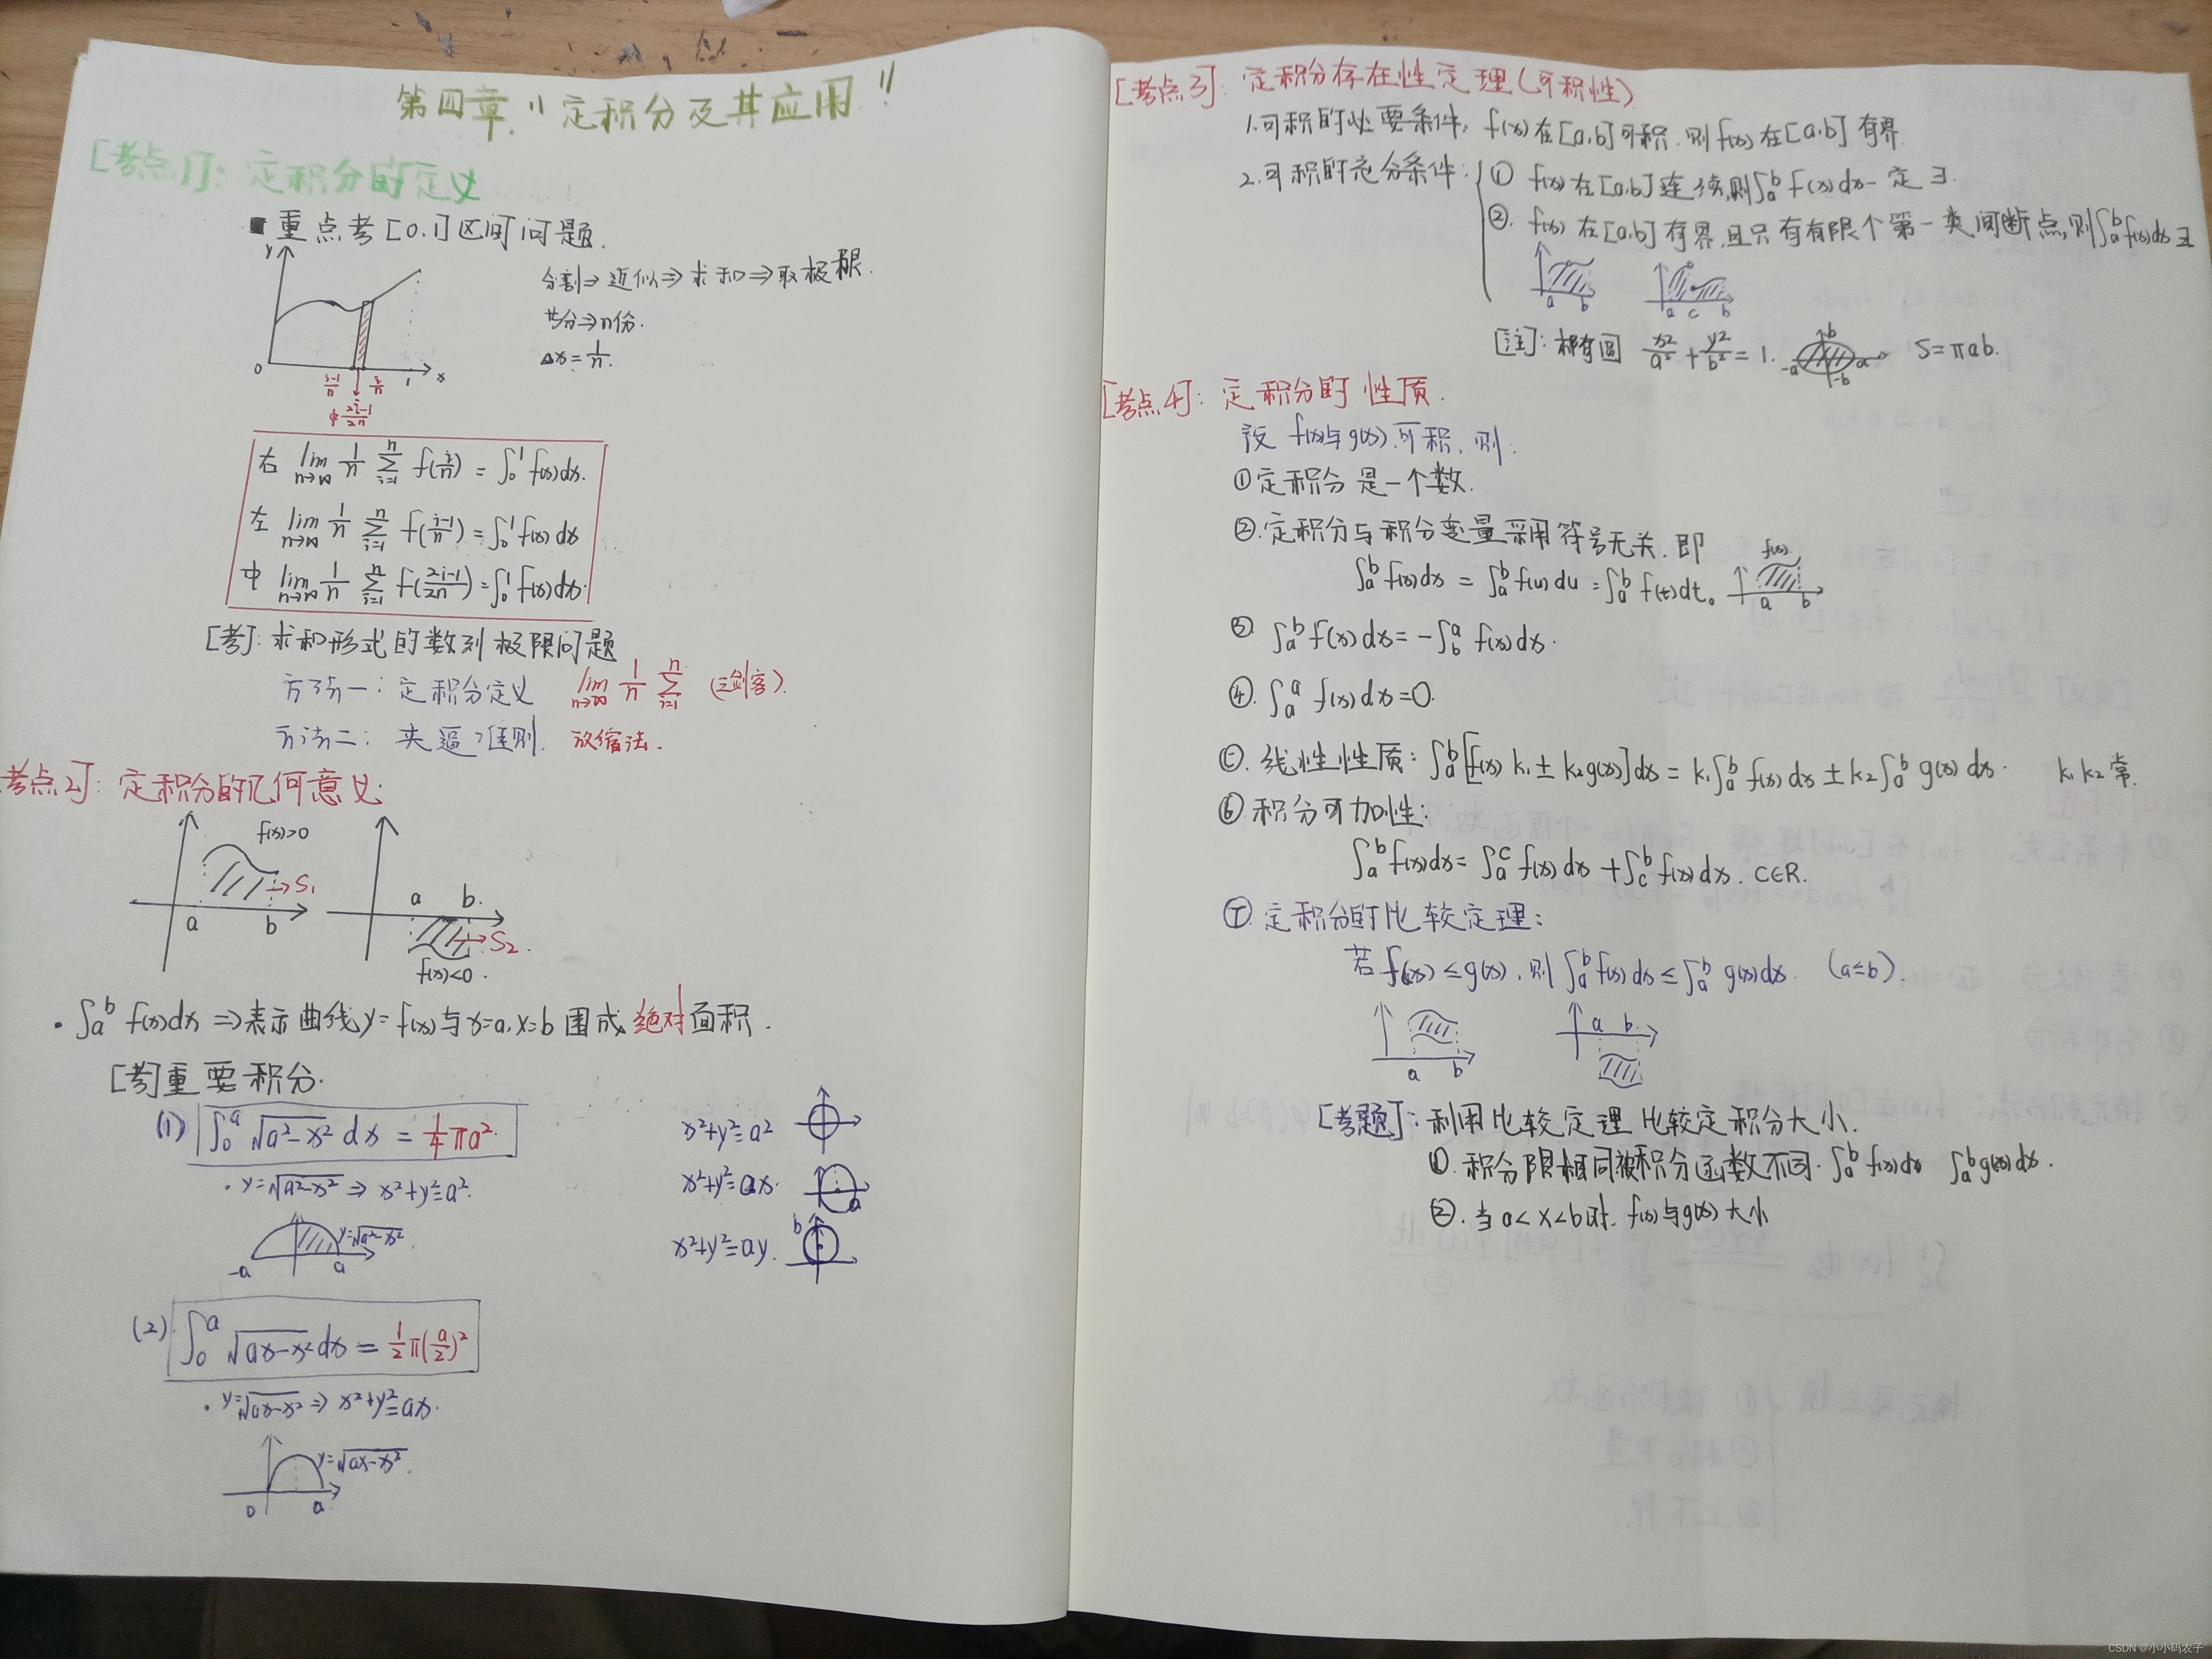 第四章 "定积分及其应用"
[考点1]: 定积分的定义
■ 重点考[0,1]区间问题.
y
0 1 x
i-1/n i/n
中 2i-1/2n
分割⇒近似⇒求和⇒取极限.
n份.
Δx = 1/n.
右 lim n→∞ 1/n Σ i=1 n f(i/n) = ∫₀¹ f(x)dx.
左 lim n→∞ 1/n Σ i=1 n f(i-1/n) = ∫₀¹ f(x)dx
中 lim n→∞ 1/n Σ i=1 n f(2i-1/2n) = ∫₀¹ f(x)dx.
[考]: 求和形式的数列极限问题
方法一: 定积分定义 lim n→∞ 1/n Σ i=1 n (三剑客).
方法二: 夹逼准则. 放缩法.
考点2]: 定积分的几何意义
f(x)>0
→S₁
a b
a b.
→S₂.
f(x)<0.
• ∫ₐᵇ f(x)dx ⇒ 表示曲线 y=f(x)与x=a,x=b 围成 绝对面积.
[考]重要积分.
(1) ∫₀ᵃ √(a²-x²) dx = 1/4 πa².
• y=√(a²-x²) ⇒ x²+y²=a².
y=√(a²-x²)
-a a
x²+y²=a²
x²+y²=ax.
a
x²+y²=ay.
b
(2) ∫₀ᵃ √(ax-x²) dx = 1/2 π(a/2)²
• y=√(ax-x²) ⇒ x²+y²=ax.
y=√(ax-x²).
0 a
[考点3]: 定积分存在性定理(可积性)
1.可积的必要条件: f(x)在[a,b]可积.则f(x)在[a,b]有界.
2.可积的充分条件: ① f(x)在[a,b]连续,则∫ₐᵇ f(x)dx一定∃.
②. f(x)在[a,b]有界,且只有有限个第一类间断点,则∫ₐᵇ f(x)dx∃
a b a c b
[注]: 椭圆 x²/a² + y²/b² = 1. -a a b -b S=πab.
[考点4]: 定积分的性质.
设 f(x)与g(x)可积,则:
①定积分是一个数.
②.定积分与积分变量采用符号无关.即
∫ₐᵇ f(x)dx = ∫ₐᵇ f(u)du = ∫ₐᵇ f(t)dt。
f(x)
a b
③ ∫ₐᵇ f(x)dx = -∫ᵦᵃ f(x)dx.
④. ∫ₐᵃ f(x)dx=0.
⑤. 线性性质: ∫ₐᵇ[f(x)k₁±k₂g(x)]dx = k₁∫ₐᵇ f(x)dx ± k₂∫ₐᵇ g(x)dx. k₁k₂常.
⑥ 积分可加性:
∫ₐᵇ f(x)dx = ∫ₐᶜ f(x)dx + ∫꜀ᵇ f(x)dx. C∈R.
⑦ 定积分的比较定理:
若 f(x)≤g(x).则∫ₐᵇ f(x)dx ≤ ∫ₐᵇ g(x)dx. (a≤b).
a b a b.
[考题]: 利用比较定理比较定积分大小.
①. 积分限相同被积分函数不同. ∫ₐᵇ f(x)dx ∫ₐᵇ g(x)dx.
②. 当a<x<b时. f(x)与g(x)大小
CSDN @小小码农子